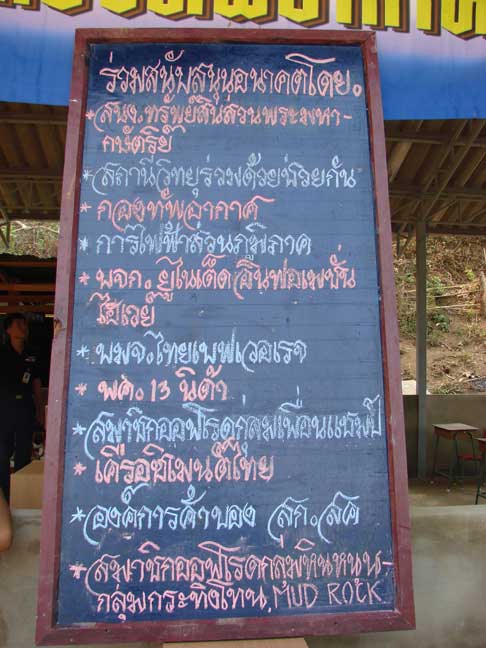 ร่วมสนับสนุนอนาคตโดย.
* สนง.ทรัพย์สินส่วนพระมหา-
กษัตริย์
* สถานีวิทยุร่วมด้วยช่วยกัน
* กองทัพอากาศ
* การไฟฟ้าส่วนภูมิภาค
* หจก. ยูไนเต็ดอินฟอเมชั่น
ไฮเวย์
* บมจ.ไทยเพฟเวอเรจ
* พศ. 13 นิด้า
* สมาชิกออฟโรดกลุ่มเพื่อนแชมป์
* เครือซิเมนต์ไทย
* องค์การค้าของ สก.สค
* สมาชิกออฟโรดกลุ่มหินหนุน-
กลุ่มกระทิงโทน. MUD ROCK